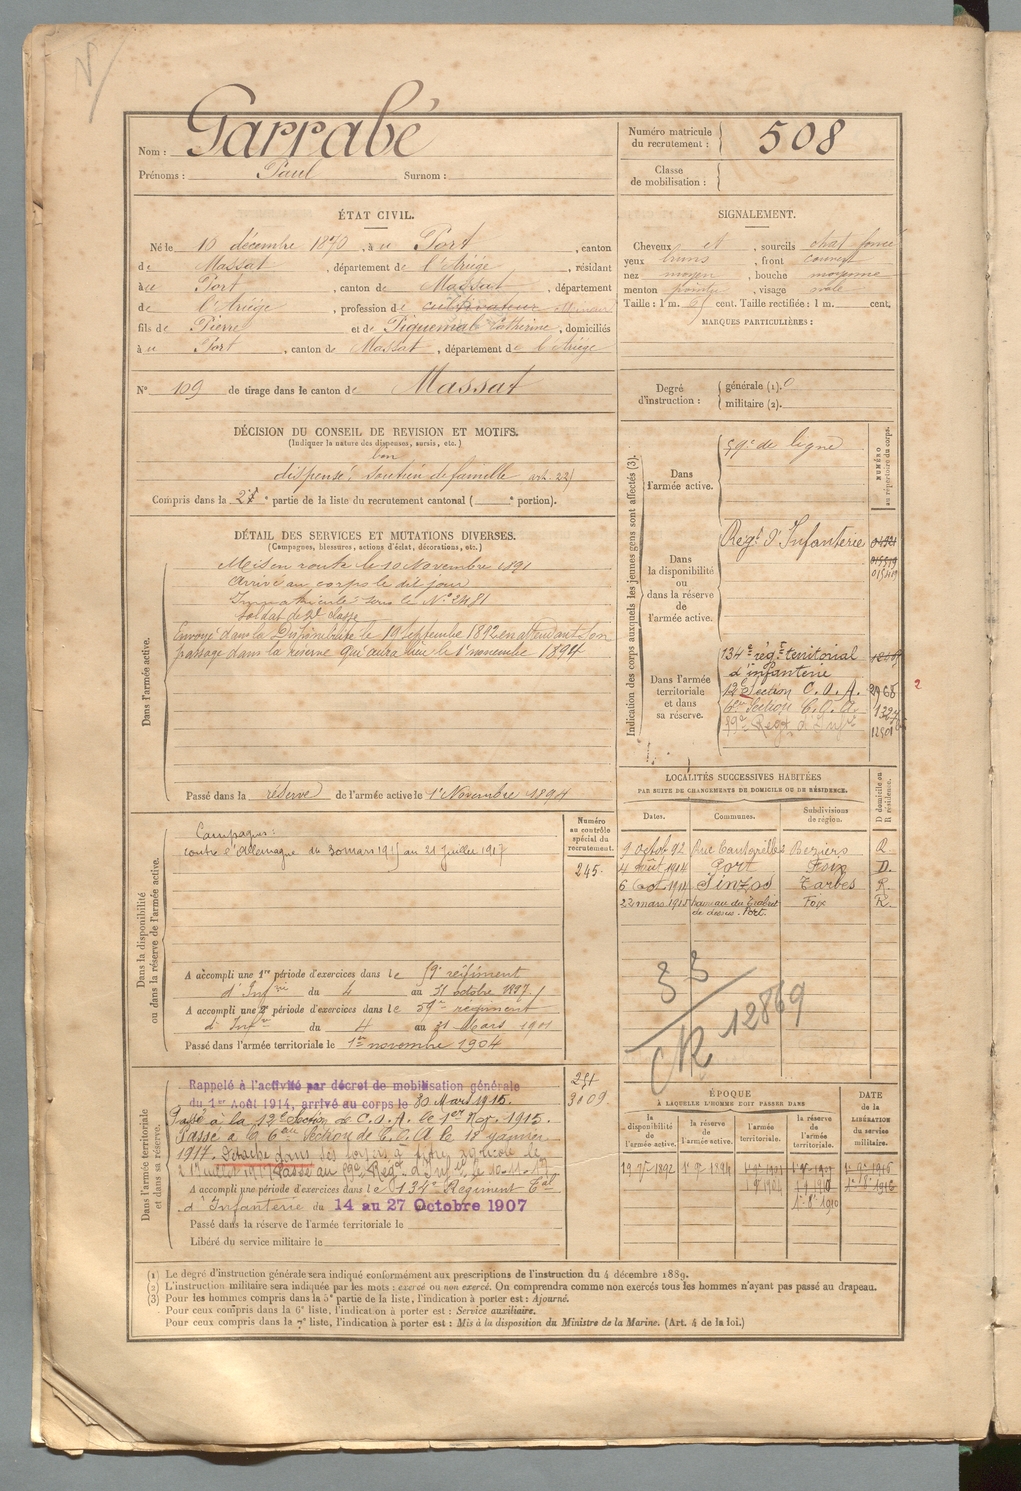 Garrabé
Nom :
Prénoms : Paul Surnom :
Numéro matricule du recrutement : 508
Classe de mobilisation :
ÉTAT CIVIL.
Né le 10 décembre 1870, à u Port, canton
de Massat, département de l'Ariège, résidant
à u Port, canton de Massat, département
de l'Ariège, profession de cultivateur
fils de Pierre et de Piquemal Catherine, domiciliés
à u Port, canton de Massat, département de l'Ariège
N° 109 de tirage dans le canton de Massat
SIGNALEMENT.
Cheveux et, sourcils chat foncé
yeux bruns, front couvert
nez moyen, bouche moyenne
menton pointu, visage ovale
Taille : 1 m. 65 cent. Taille rectifiée : 1 m. cent.
MARQUES PARTICULIÈRES :
Degré d'instruction : générale (1). 0
militaire (2).
DÉCISION DU CONSEIL DE REVISION ET MOTIFS.
(Indiquer la nature des dispenses, sursis, etc.)
bon
dispensé. Soutien de famille art. 22)
Compris dans la 2e partie de la liste du recrutement cantonal ( e portion).
DÉTAIL DES SERVICES ET MUTATIONS DIVERSES.
(Campagnes, blessures, actions d'éclat, décorations, etc.)
Dans l'armée active.
Mis en route le 10 Novembre 1891
Arrivé au corps le dit jour
Immatriculé sous le N° 2481
Soldat de 2e classe
Envoyé dans la Disponibilité le 19 septembre 1892 en attendant son
passage dans la réserve qui aura lieu le 1er novembre 1894
Passé dans la réserve de l'armée active le 1er Novembre 1894
Indication des corps auxquels les jeunes gens sont affectés (3).
NUMÉRO au répertoire du corps.
Dans l'armée active.
59e de ligne
Dans la disponibilité ou dans la réserve de l'armée active.
Regt d'Infanterie
015419
Dans l'armée territoriale et dans sa réserve.
134e rég.t territorial
d'infanterie
12e Section C. O. A. 2968
2
6e Section C. O. A.
Regt d'Infie
LOCALITÉS SUCCESSIVES HABITÉES
PAR SUITE DE CHANGEMENTS DE DOMICILE OU DE RÉSIDENCE.
Dates. Communes. Subdivisions de région. D domicile ou R résidence.
9 octob 92 Béziers R.
4 août 1914 Port Foix D.
6 1914 Sinzos Tarbes R.
22 mars 1915 hameau du
de dessus. Port. Foix R.
Dans la disponibilité ou dans la réserve de l'armée active.
Numéro au contrôle spécial du recrutement.
245.
Campagnes :
contre l'Allemagne du 30 mars 1915 au 21 juillet 1917
A accompli une 1re période d'exercices dans le régiment
d'Infie du 4 au 31 octobre 1897
A accompli une 2e période d'exercices dans le 59e régiment
d'Infie du 4 au 31 Mars 1901
Passé dans l'armée territoriale le 1er novembre 1904
33
CR 12869
Dans l'armée territoriale et dans sa réserve.
Rappelé à l'activité par décret de mobilisation générale
du 1er Août 1914, arrivé au corps le 30 Mars 1915.
Passé à la 12e Section de C.O.A. le 1er Nov. 1915.
Passé à la 6e Section de C.O.A. le 1er janvier
1917. Détaché dans ses foyers à titre agricole le
A accompli une période d'exercices dans le 134e Régiment Tal
d'Infanterie du 14 au 27 Octobre 1907
Passé dans la réserve de l'armée territoriale le
Libéré du service militaire le
3109
ÉPOQUE
À LAQUELLE L'HOMME DOIT PASSER DANS
la disponibilité de l'armée active. la réserve de l'armée active. l'armée territoriale. la réserve de l'armée territoriale.
DATE de la LIBÉRATION du service militaire.
19 7bre 1892
(1) Le degré d'instruction générale sera indiqué conformément aux prescriptions de l'instruction du 4 décembre 1889.
(2) L'instruction militaire sera indiquée par les mots : exercé ou non exercé. On comprendra comme non exercés tous les hommes n'ayant pas passé au drapeau.
(3) Pour les hommes compris dans la 5e partie de la liste, l'indication à porter est : Ajourné.
Pour ceux compris dans la 6e liste, l'indication à porter est : Service auxiliaire.
Pour ceux compris dans la 7e liste, l'indication à porter est : Mis à la disposition du Ministre de la Marine. (Art. 4 de la loi.)